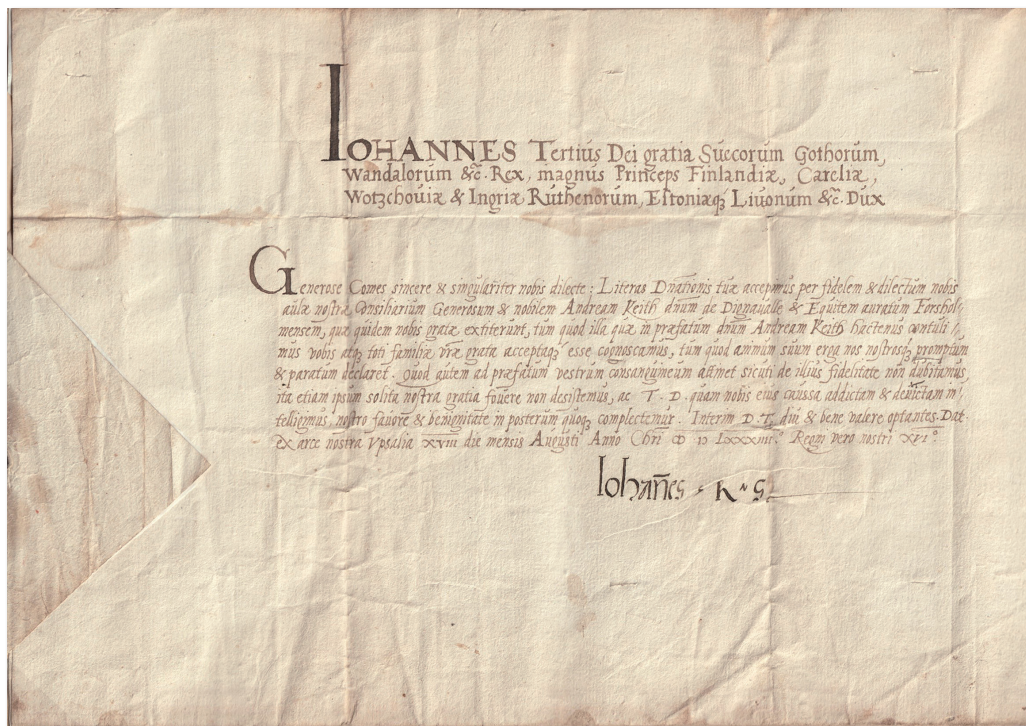 IOHANNES Tertius Dei gratia Suecorum Gothorum,
Wandalorum &c̃. Rex, magnus Princeps Finlandiæ, Careliæ,
Wotzchouiæ & Ingriæ Ruthenorum, Estoniæq₃ Liuonum &c̃. Dux
Generose Comes sincere & singulariter nobis dilecte: Literas Dnationis tuæ accepimus per fidelem & dilectum nobis
aulæ nostræ Consiliarium Generosum & nobilem Andream Keith dnum de Dignaualle & Equitem auratum Forshol-
mensem, quæ quidem nobis gratæ extiterunt, tum quod illa quæ in præfatum dnum Andream Keith hactenus contuli-
mus vobis atq₃ toti familiæ vræ grata acceptaq₃ esse cognoscamus, tum quod animum suum erga nos nostrosq₃ promptum
& paratum declaret. Quod autem ad præfatum vestrum consanguineum attinet sicuti de illius fidelitate non dubitamus,
ita etiam ipsum solita nostra gratia fouere non desistemus, ac T. D. quam nobis eius caussa addictam & deuictam in-
telligimus, nostro fauore & benignitate in posterum quoq₃ complectemur. Interim D. T. diu & bene valere optantes. Dat.
ex arce nostra Vpsalia XVIII die mensis Augusti Anno Chri Regni vero nostri XVI°
Iohañes R